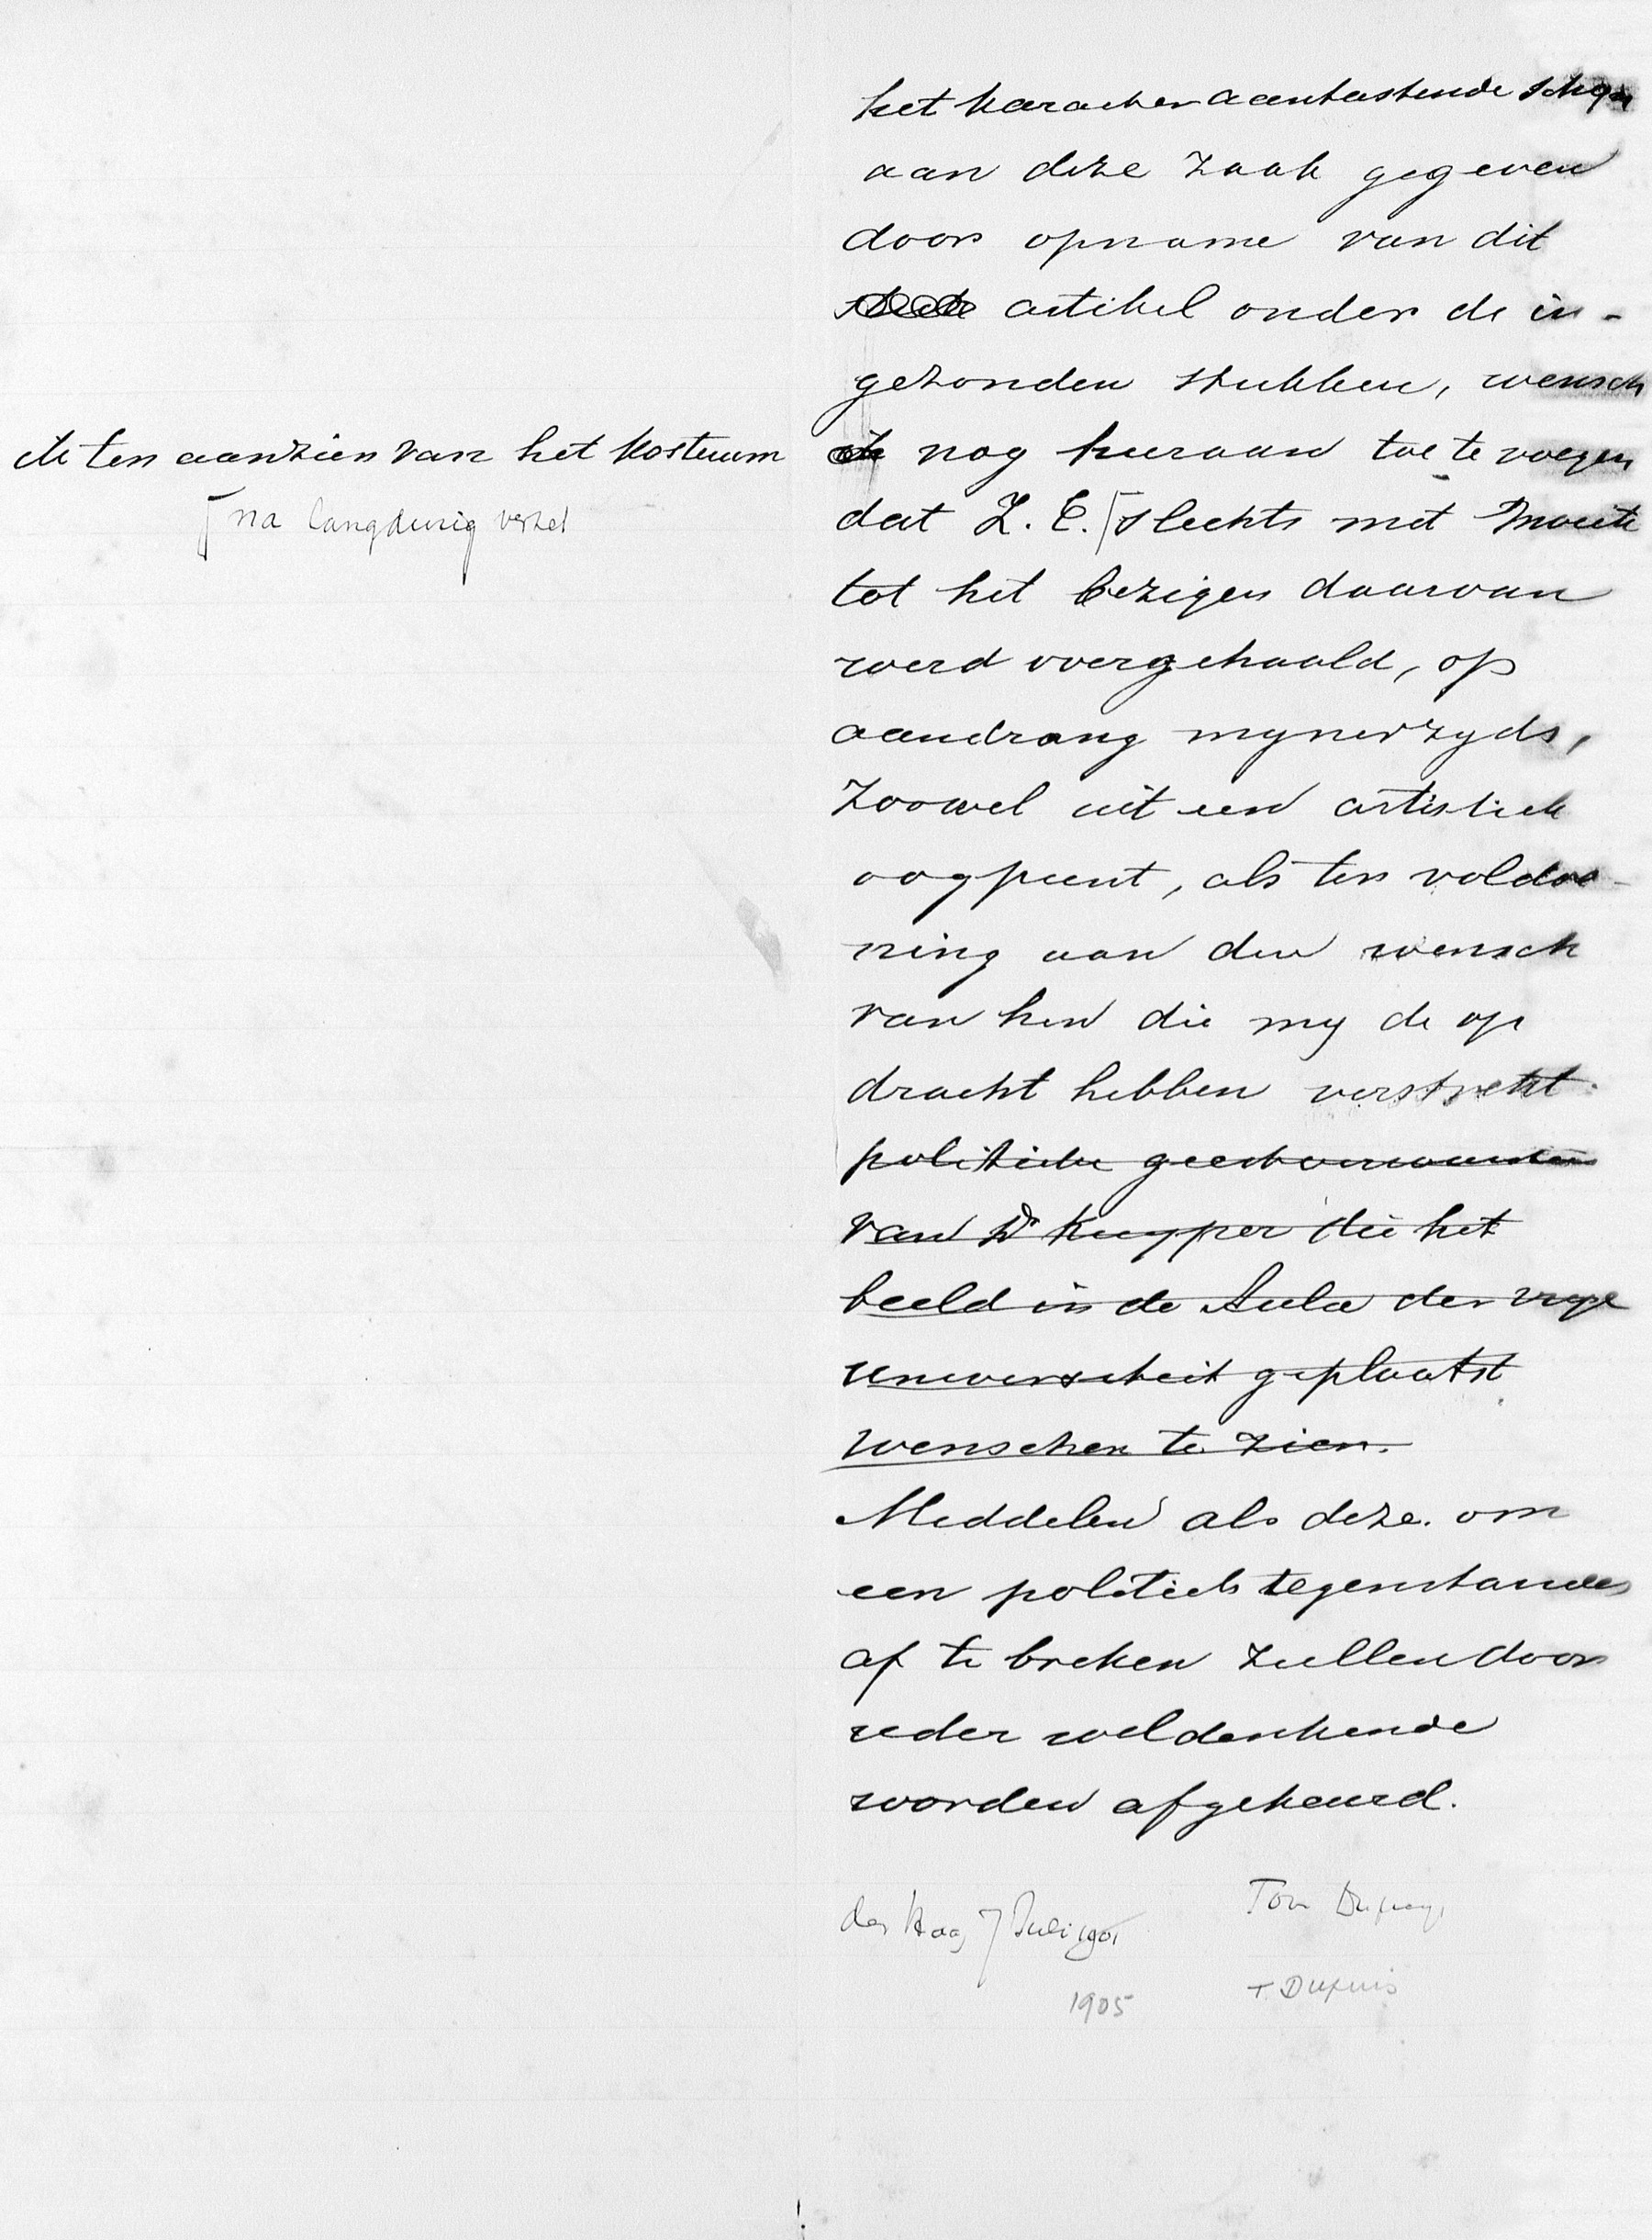 het karacter aantastende schyn
aan deze zaak gegeven
door opname van dit
artikel onder de in-
gezonden stukken, wensch
ik ten aanzien van het kostuum
nog hieraan toe te voegen
⌈ na langdurig verzet
dat Z. E. ⌈ slechts met moeite
tot het bezigen daarvan
werd overgehaald, op
aandrang mynerzyds,
zoowel uit een artistiek
oogpunt, als ter voldoe-
ning aan den wensch
van hen die my de op
dracht hebben verstrekt.
politieke geestverwanten
van Dr Kuyper die het
beeld in de Aula der vrye
universiteit geplaatst
wenschen te zien.
Middelen als deze om
een politiek tegenstander
af te breken zullen door
ieder weldenkende
worden afgekeurd.
den Haag 7 Juli 1901 Ton Dupuy
1905 T. Dupuis